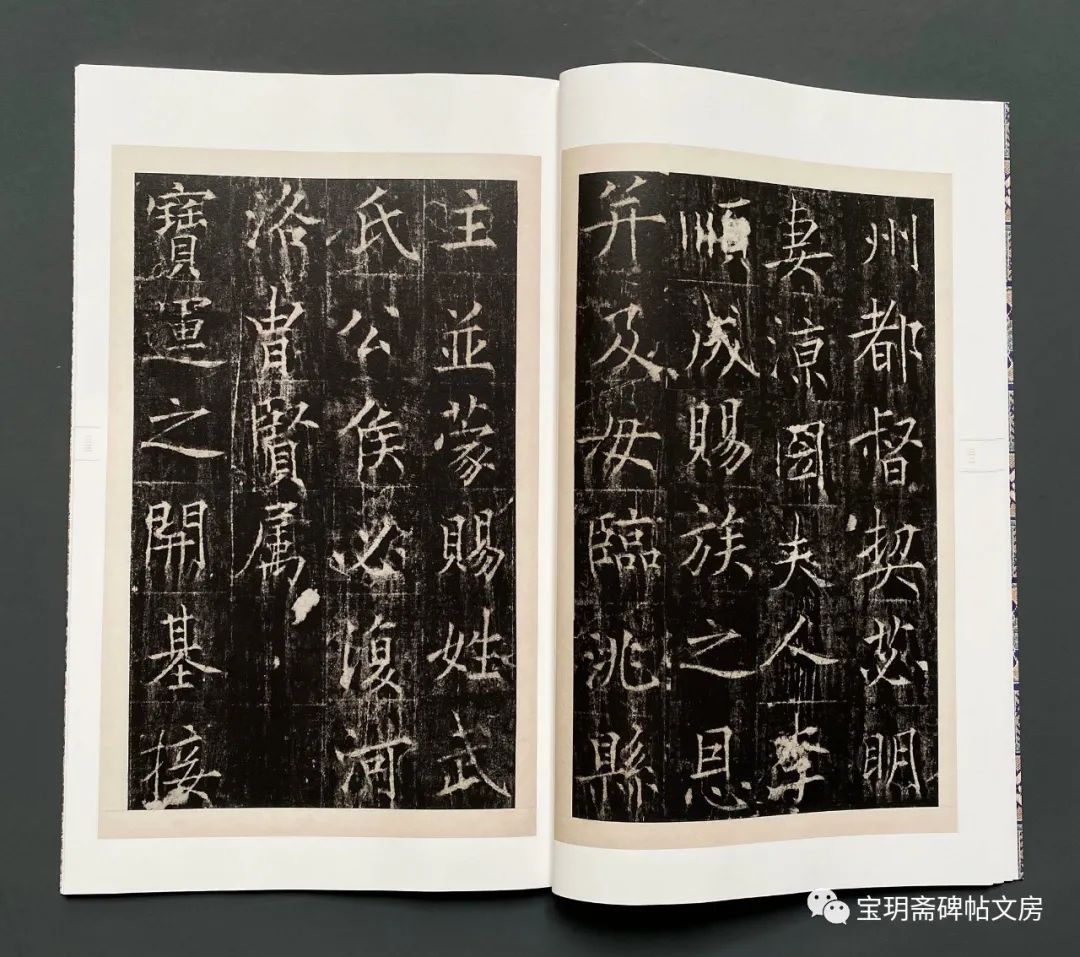 州都督契苾明
妻凉国夫人李
順成賜族之恩
并及母臨洮縣
主並蒙賜姓武
氏公侯必復河
洛胄賢属
寶運之開基接
宝玥斋碑帖文房